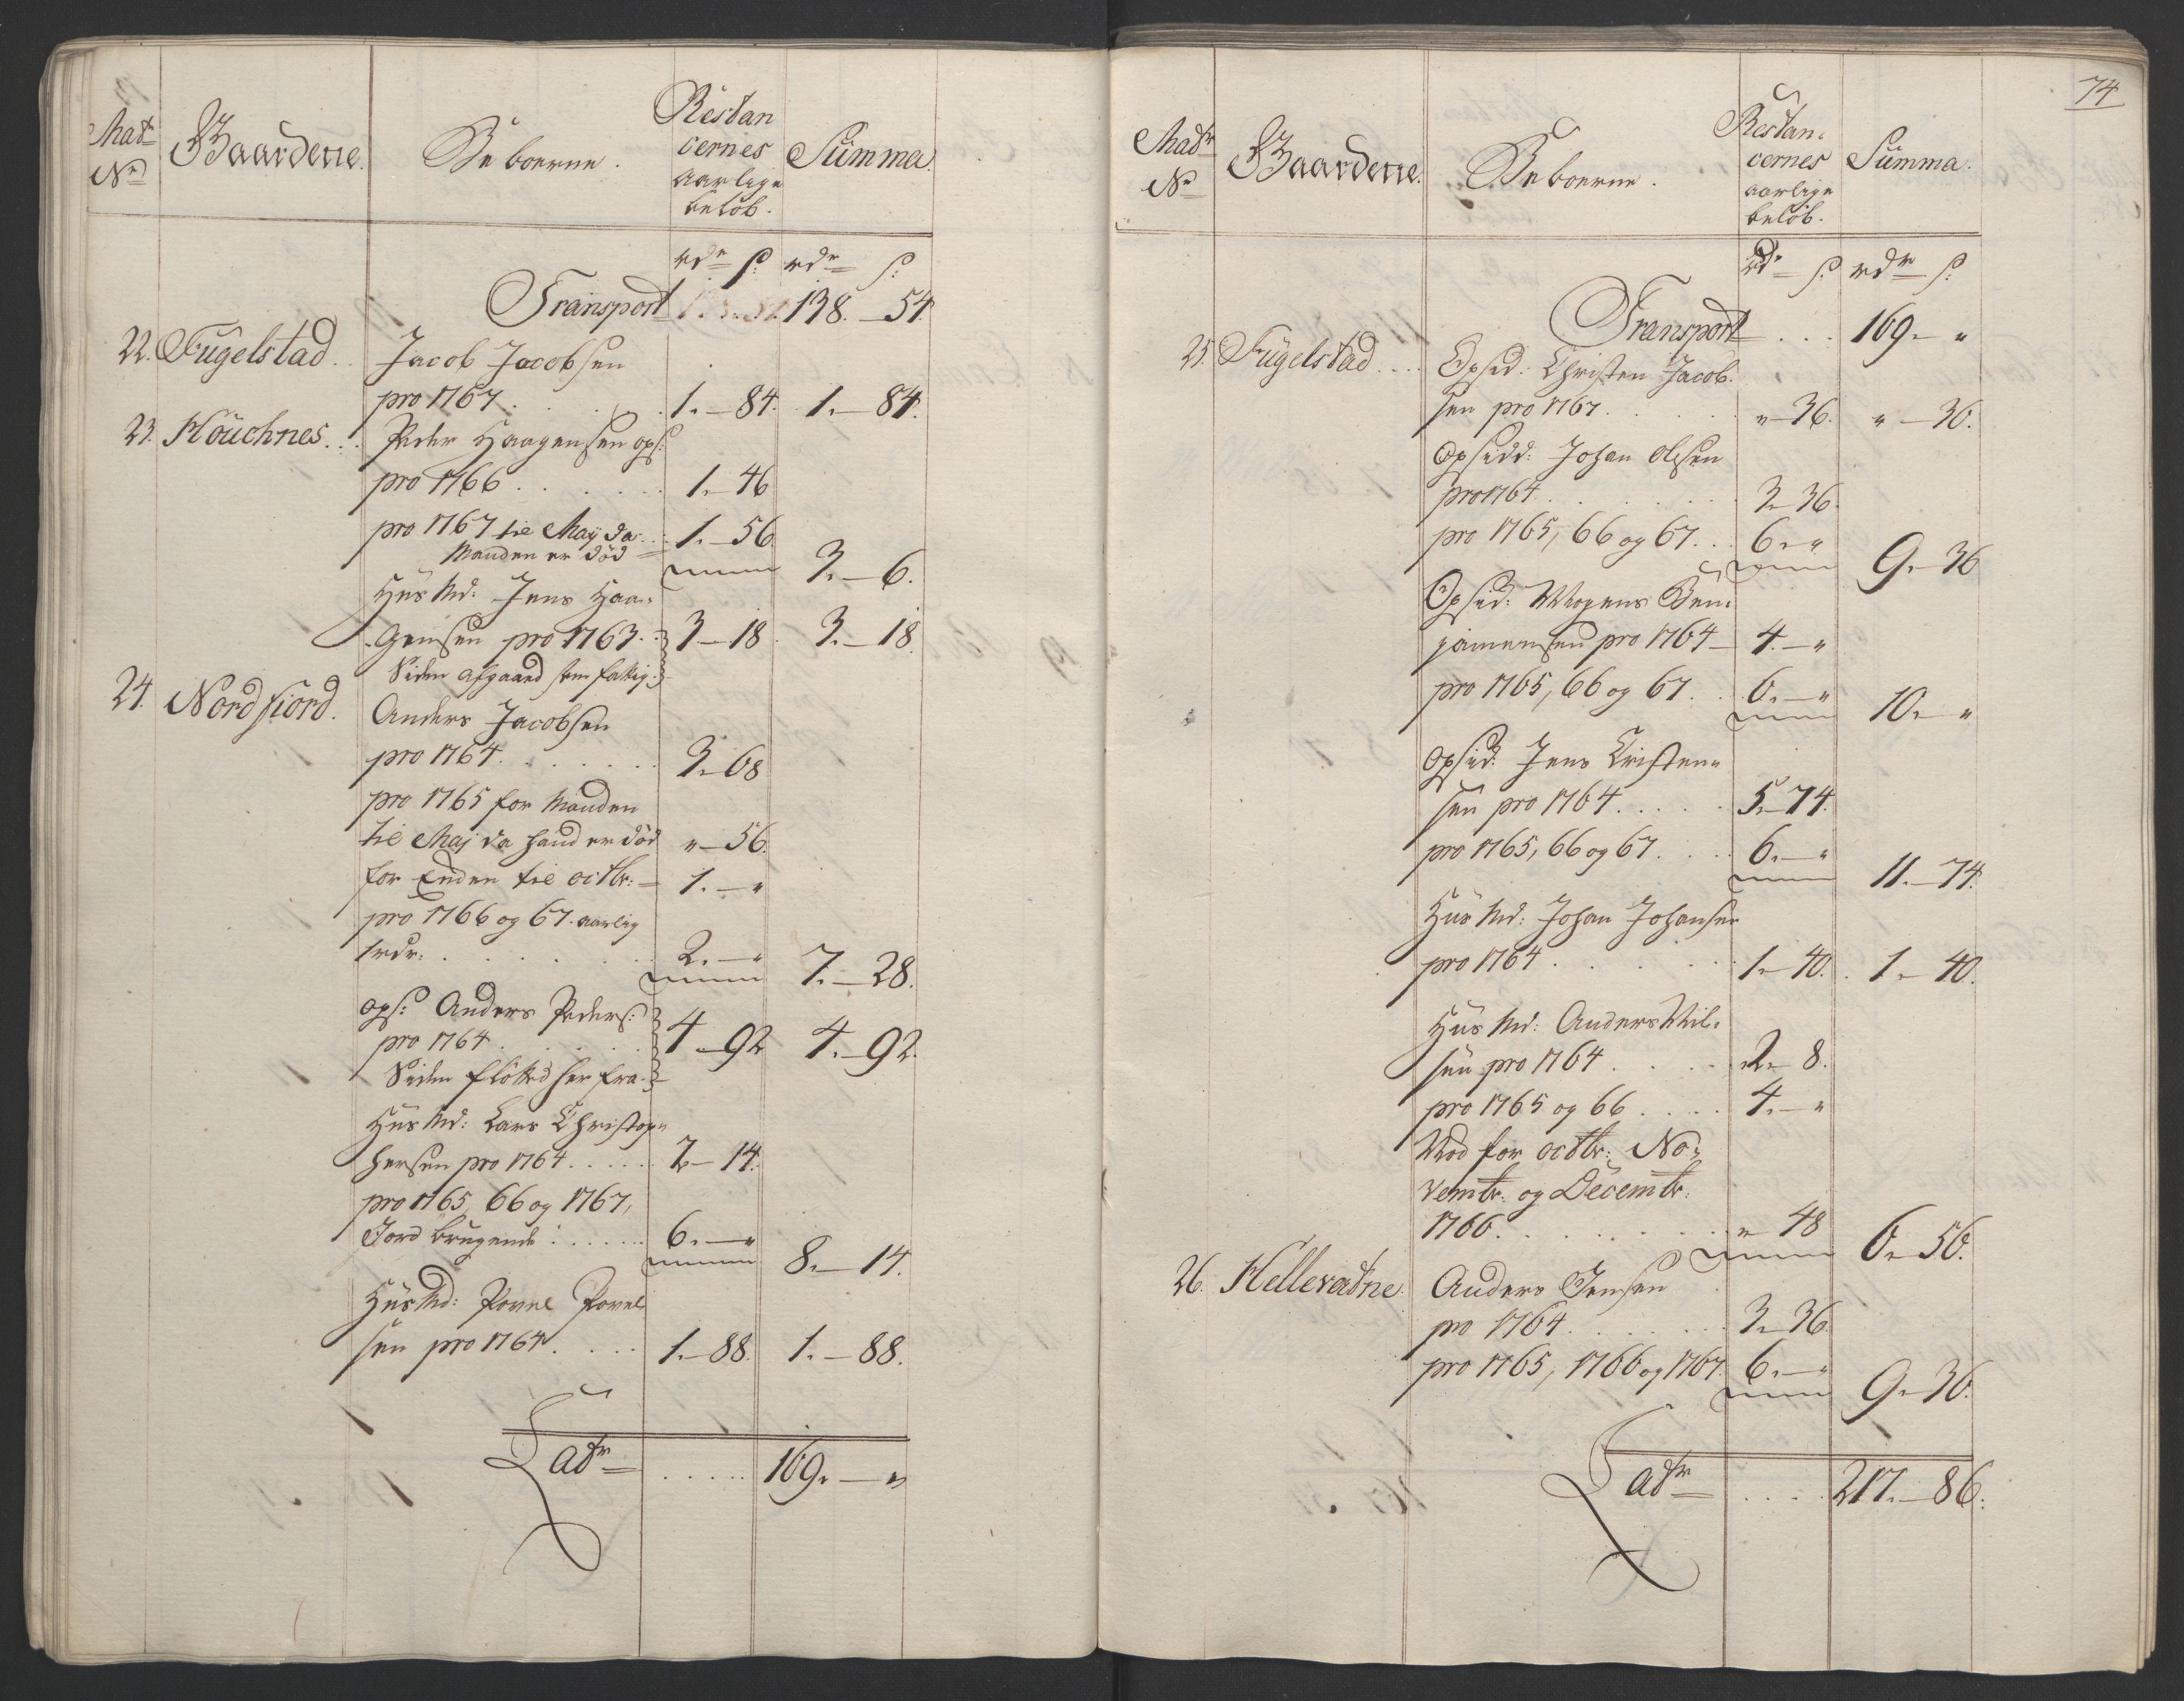 Mat
No
Gaardene.
Beboerne.
Restan
cernes
aarlige
beløb.
Summa.
rdr ß: rdr ß:
Transport 138. — 54.
22. Fugelstad. Jacob Jacobsen
pro 1767. 1. — 84. 1. — 84.
23. Houchnes. Peder Haagensen ops:
pro 1766. 1. — 46
pro 1767 til Maij da 1. — 56.
Manden er død 3. — 6.
Huus Md: Jens Haa-
gensen pro 1763. 3 — 18. 3. — 18.
Siden afgaaed som fattig.
24. Nordfiord. Anders Jacobsen
pro 1764. 3. 68
pro 1765 for Manden
til Maj da hand er død " — 56.
for Enden til octbr: 1. — "
pro 1766 og 67. aarlig
1rdr. 2. — " 7. — 28.
ops: Anders Peders:
pro 1764. 4 — 92 4. — 92.
Siden fløtted herfra.
Huus Md: Lars Christop-
hersen pro 1764. 2 — 14.
pro 1765, 66 og 1767,
Jord brugende 6. — " 8. — 14.
Huus Md: Povel Povel
sen pro 1764. 1. — 88. 1. — 88.
Latr 169. — "
74
Matr
No
Gaardene.
Beboerne.
Restan-
cernes
aarlige
beløb.
Summa.
rdr ß: rdr ß:
Transport 169. — "
25. Fugelstad. Opsid: Christen Jacob-
sen pro 1767. " — 36. " — 36.
Opsidd: Johan Olsen
pro 1764. 3. 36.
pro 1765, 66 og 67. 6. — " 9. — 36
Opsid: Mogens Ben-
jamensen pro 1764 4. — "
pro 1765, 66 og 67. 6. — " 10. — "
opsid: Jens Cristen-
sen pro 1764. 5. — 74.
pro 1765, 66 og 67. 6. — " 11. — 74.
Huus Md: Johan Johansen
pro 1764. 1. — 40. 1. — 40.
Huus Md: Anders Nil-
sen pro 1764. 2. — 8.
pro 1765 og 66. 4. — "
Mod for octbr: No-
vembr. og Decembr:
1766. " 48 6. — 56.
26. Hellevatne. Anders Jensen
pro 1764. 3. — 36.
pro 1765, 1766 og 1767. 6. — " 9. — 36.
Latr 217. — 86.